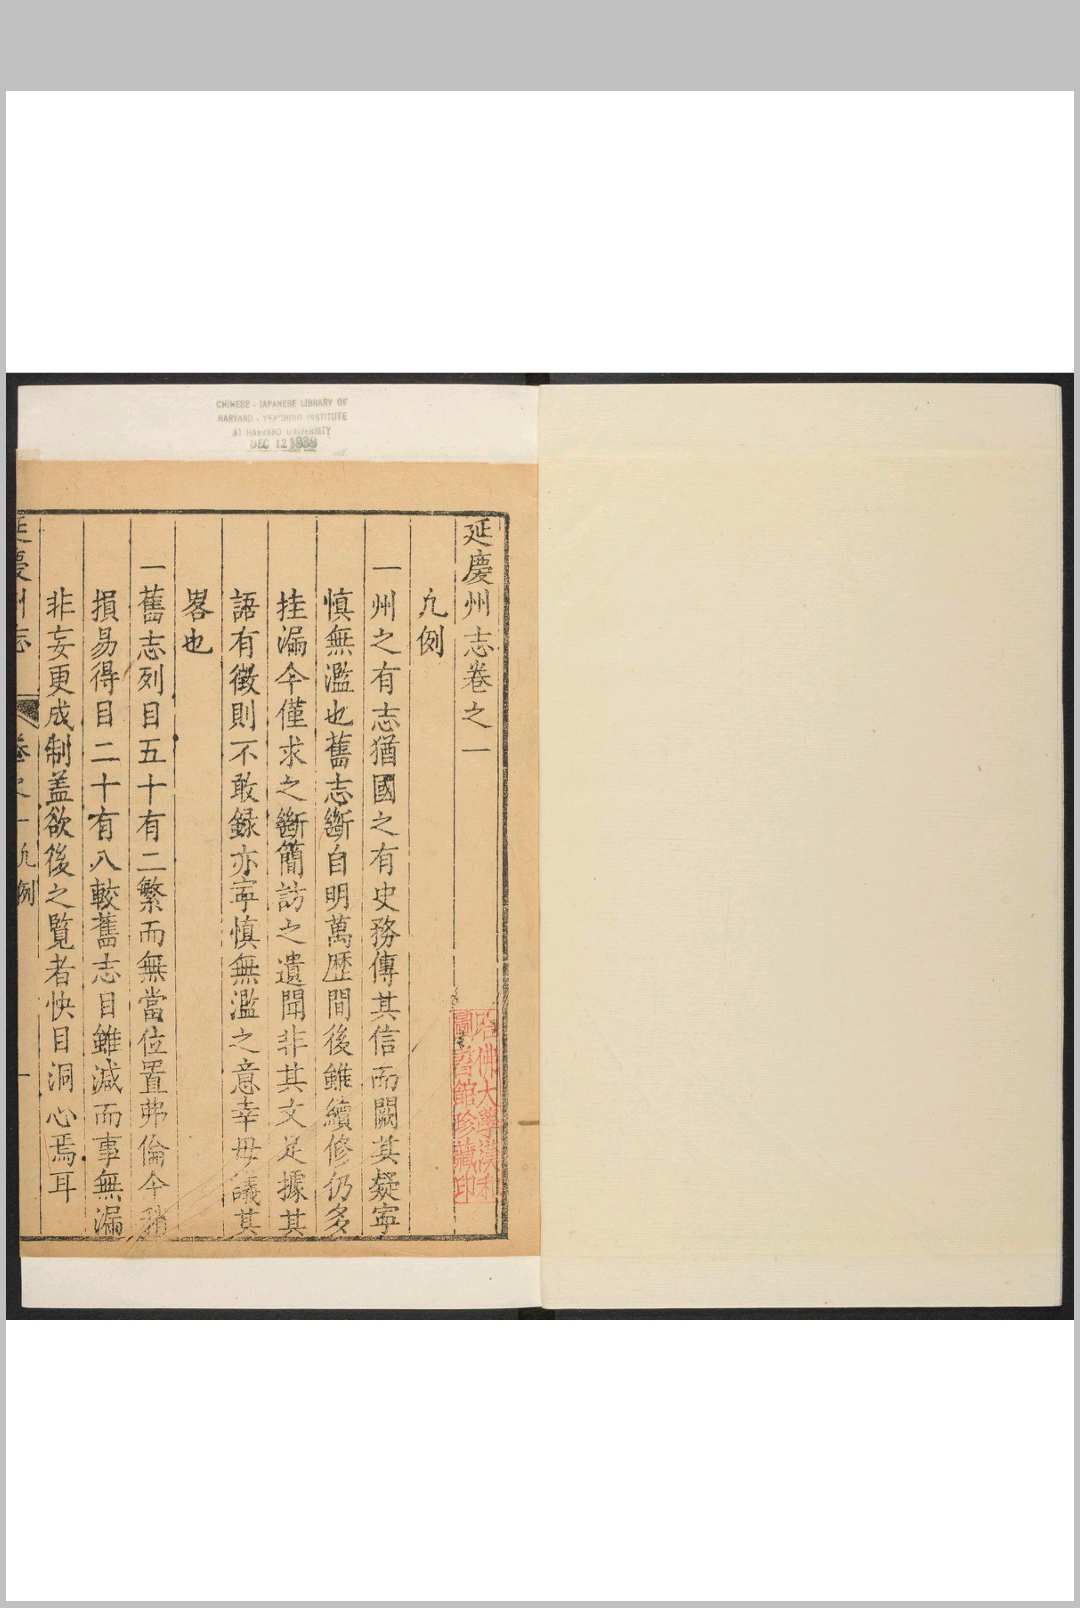 CHINESE - JAPANESE LIBRARY OF
HARVARD - YENCHING INSTITUTE
AT HARVARD UNIVERSITY
DEC 12 1939
延慶州志卷之一
凡例
一州之有志猶國之有史務傳其信而闕其疑寕
慎無濫也舊志斷自明萬歴間後雖續修仍多
挂漏今僅求之斷簡訪之遺聞非其文足據其
語有徵則不敢録亦寕慎無濫之意幸毋議其
畧也
一舊志列目五十有二繁而無當位置弗倫今稍
損易得目二十有八較舊志目雖減而事無漏
非妄更成制盖欲後之覽者快目洞心焉耳
延慶州志 卷之一凡例 一
哈佛大學漢和
圖書館珍藏印